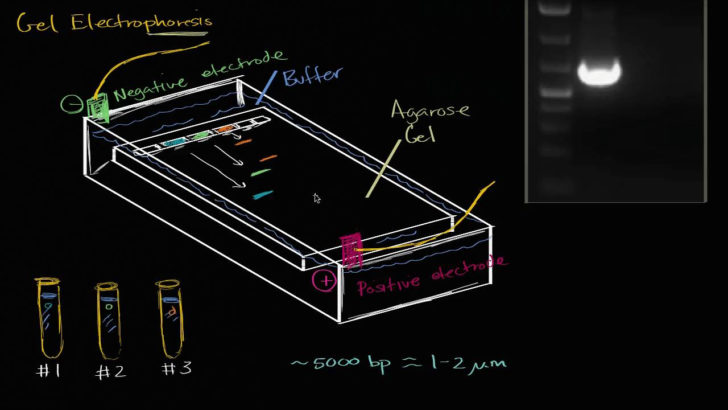 Gel Electrophoresis
Negative electrode
Buffer
Agarose
Gel
Positive electrode
#1 #2 #3
~5000 bp ≈ 1-2 μm